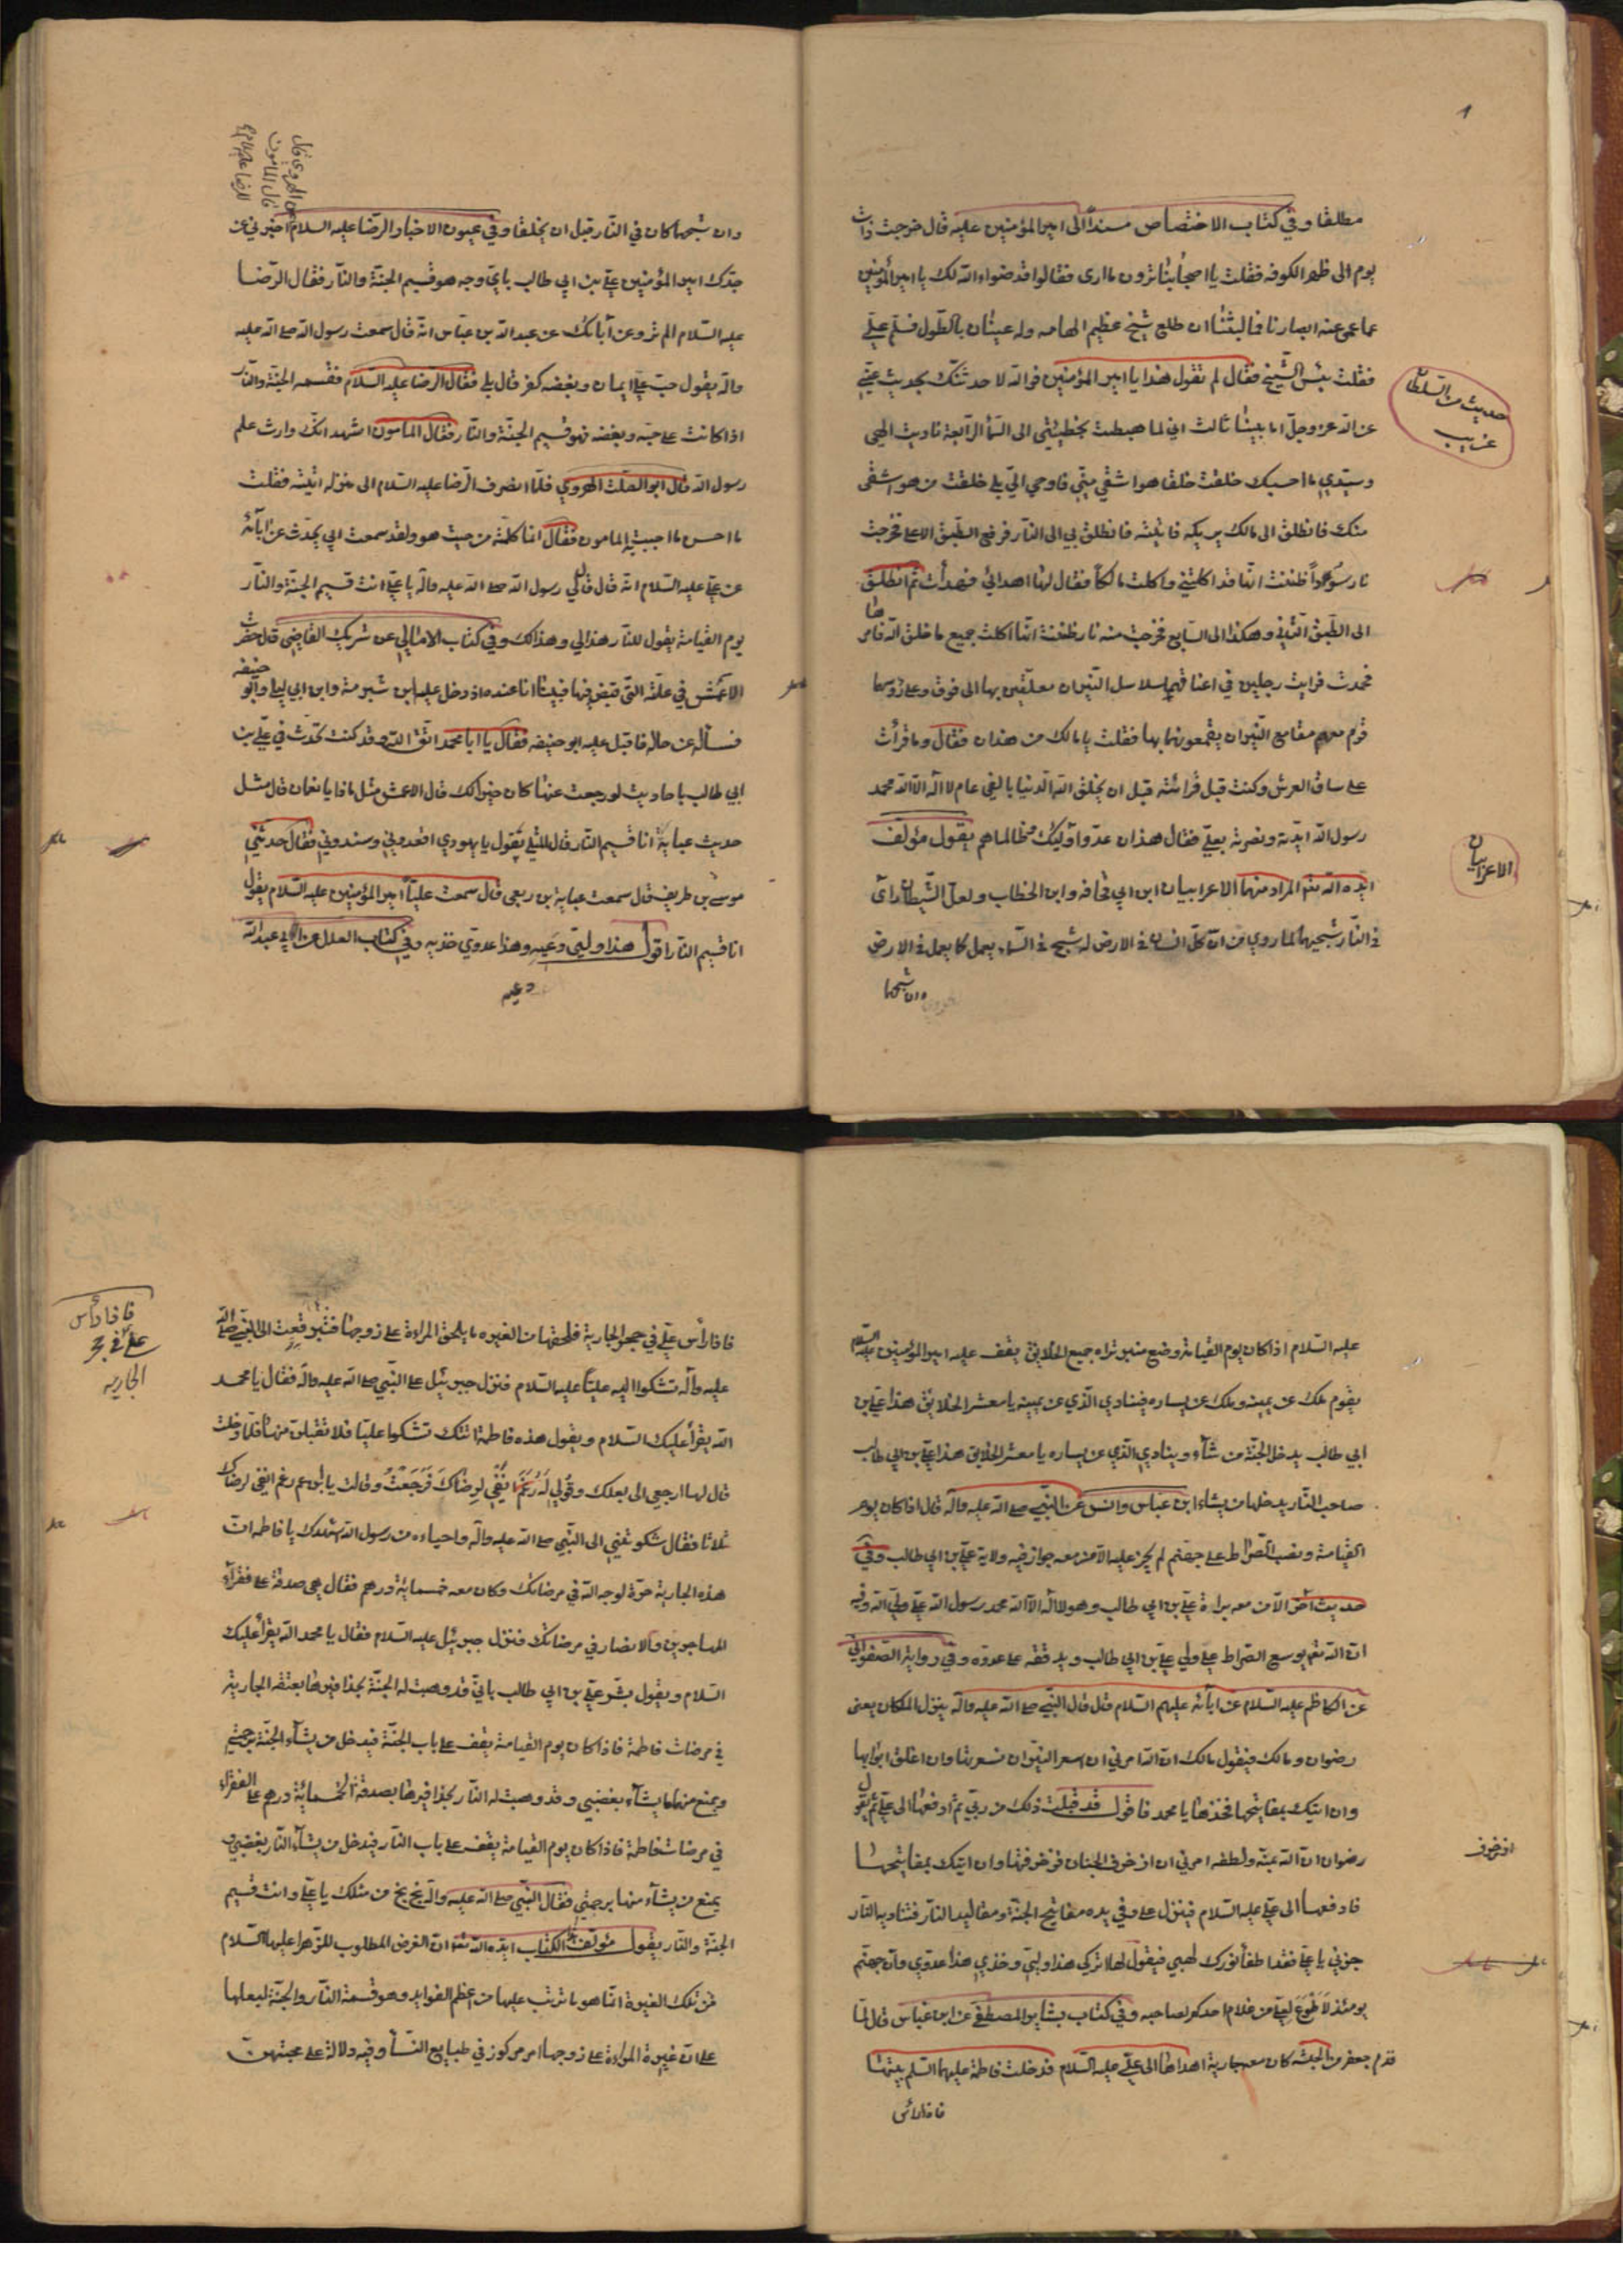 مطلقا وفي كتاب الاختصاص مسندا الى امير المؤمنين عليه قال خرجت ذات
يوم الى ظهر الكوفه فقلت يا اصحابنا ترون ما ارى فقالوا قد ضواء الله لك يا امير المؤمنين
عما عمى عنه ابصارنا فما لبثنا ان طلع شيخ عظيم الهامه وله عينان بالطول فسلم علي
فقلت بئس الشيخ فقال لم تقول هذا يا امير المؤمنين فوالله لاحدثتك بحديث عني
عن الله عز وجل ما بيننا ثالث اني لما هبطت بخطيئتي الى السماء الرابعة ناديت الهي
وسيدي ما احسبك خلقت خلقا هو اشقى مني فاوحي الي بلى خلقت من هو اشقى
منك فانطلق الى مالك يريكه فاتيته فانطلق بي الى النار فرفع الطبق الاعلى فخرجت
نار سوداء ظننت انها قد اكلتني واكلت مالكا فقال لها اهدائي فهدأت ثم انطلق
الى الطبق الثاني وهكذا الى السابع فخرجت منه نار ظننت انها اكلت جميع ما خلق الله فامرها
فخمدت فرايت رجلين في اعناقهم سلاسل النيران معلقين بها الى فوق وعلى رؤسهما
قوم معهم مقامع النيران يقمعونهما بها فقلت يا مالك من هذان فقال وما قرأت
على ساق العرش وكنت قبل قرائته قبل ان يخلق الله الدنيا بالفي عام لا اله الا الله محمد
رسول الله ايدته ونصرته بعلي فقال هذان عدوا اوليك وظالماهم يقول مؤلف
ايده الله تعالى المراد منهما الاعرابيان ابن ابي قحافه وابن الخطاب ولعل الشيطان رأى
في النار شبحيهما لما روي من ان كل انسان في الارض له شبح في السماء يعمل كما يعمل في الارض
وان شبحهما
حديث من الشيطان
غريب
الاعرابيان
وان شبحهما كان في النار قبل ان يخلقا وفي عيون الاخبار الرضا عليه السلام اخبرني عن
جدك امير المؤمنين علي بن ابي طالب باي وجه هو قسيم الجنة والنار فقال الرضا
عليه السلام الم ترو عن آبائك عن عبد الله بن عباس انه قال سمعت رسول الله صلى الله عليه
وآله يقول حب علي ايمان وبغضه كفر قال بلى فقال الرضا عليه السلام فقسمه الجنة والنار
اذا كانت على حبه وبغضه فهو قسيم الجنة والنار فقال المامون اشهد انك وارث علم
رسول الله قال ابو الصلت الهروي فلما انصرف الرضا عليه السلام الى منزله اتيته فقلت
ما احسن ما اجبت به المامون فقال انما كلمته من حيث هو ولقد سمعت ابي يحدث عن آبائه
عن علي عليه السلام انه قال قال لي رسول الله صلى الله عليه وآله يا علي انت قسيم الجنة والنار
يوم القيامة يقول للنار هذا لي وهذا لك وفي كتاب الامالي عن شريك القاضي قال حضرت
الاعمش في علته التي قبض فيها فبينا انا عنده اذ دخل عليه ابن شبرمة وابن ابي ليلى وابو حنيفه
فسأله عن حاله فاقبل عليه ابو حنيفه فقال يا ابا محمد اتق الله وقد كنت تحدث في علي بن
ابي طالب باحاديث لو رجعت عنها كان خيرا لك قال الاعمش مثل ماذا يا نعمان قال مثل
حديث عباية انا قسيم النار قال لمثلي تقول يا يهودي اقعدوني وسندوني فقال حدثني
موسى بن طريف قال سمعت عباية بن ربعي قال سمعت عليا امير المؤمنين عليه السلام يقول
انا قسيم النار اقول هذا وليي دعيه وهذا عدوي خذيه وفي كتاب العلل عن ابي عبد الله
دعيه
عن الهروي قال
قال المامون
للرضا عليه السلام
عليه السلام اذا كان يوم القيامة وضع منبر تراه جميع الخلايق يقف عليه امير المؤمنين عليه السلام
يقوم ملك عن يمينه وملك عن يساره فينادي الذي عن يمينه يا معشر الخلايق هذا علي بن
ابي طالب يدخل الجنة من شاء وينادي الذي عن يساره يا معشر الخلايق هذا علي بن ابي طالب
صاحب النار يدخلها من يشاء ابن عباس وانس عن النبي صلى الله عليه وآله قال اذا كان يوم
القيامة ونصب الصراط على جهنم لم يجز عليه الا من معه جواز فيه ولاية علي بن ابي طالب وفي
حديث آخر الا من معه براءة علي بن ابي طالب وهو لا اله الا الله محمد رسول الله علي ولي الله وفيه
ان الله تعالى يوسع الصراط على ولي علي بن ابي طالب ويدققه على عدوه وفي رواية الصفواني
عن الكاظم عليه السلام عن آبائه عليهم السلام قال قال النبي صلى الله عليه وآله ينزل الملكان يعني
رضوان ومالك فيقول مالك ان الله امرني ان اسعر النيران فسعرتها وان اغلق ابوابها
وان اتيك بمفاتيحها فخذها يا محمد فاقول قد قبلت ذلك من ربي ثم ادفعها الى علي ثم يقول
رضوان ان الله بمنه ولطفه امرني ان ازخرف الجنان فزخرفتها وان اتيك بمفاتيحها
فادفعها الى علي عليه السلام فينزل علي وفي يده مفاتيح الجنة ومقاليد النار فتناديه النار
جزني يا علي فقد اطفأ نورك لهبي فيقول لها اتركي هذا وليي وخذي هذا عدوي وان جهنم
يومئذ لاطوع لعلي من غلام احدكم لصاحبه وفي كتاب بشاير المصطفى عن ابن عباس قال لما
قدم جعفر من الحبشه كان معه جارية اهداها الى علي عليه السلام فدخلت فاطمة عليها السلم بيتها
فاذا رأس
ازخرف
فاذا رأس علي في حجر الجارية فلحقها من الغيره ما يلحق المراءة على زوجها فتبرقعت الى النبي صلى الله
عليه وآله تشكوا اليه عليا عليه السلام فنزل جبرئيل على النبي صلى الله عليه وآله فقال يا محمد
الله يقرأ عليك السلام ويقول هذه فاطمة اتتك تشكوا عليا فلا تقبلن منها فلما دخلت
قال لها ارجعي الى بعلك وقولي له رغم انفي لرضاك فرجعت وقالت يا ابن عم رغم انفي لرضاك
ثلاثا فقال شكوتيني الى النبي صلى الله عليه وآله واحياءه من رسول الله اشهدك يا فاطمه ان
هذه الجارية حرة لوجه الله في مرضاتك وكان معه خمسمائة درهم فقال هي صدقة على فقرآء
المهاجرين والانصار في مرضاتك فنزل جبرئيل عليه السلام فقال يا محمد الله يقرأ عليك
السلام ويقول بشر علي بن ابي طالب باني قد وهبت له الجنة بحذافيرها بعتقه الجارية
في مرضات فاطمة فاذا كان يوم القيامة يقف على باب الجنة فيدخل من يشاء الجنة برحمتي
ويمنع منها من يشاء بغضبي وقد وهبت له النار بحذافيرها بصدقة الخمسمائة درهم على الفقراء
في مرضات فاطمة فاذا كان يوم القيامة يقف على باب النار فيدخل من يشاء النار بغضبي و
يمنع من يشاء منها برحمتي فقال النبي صلى الله عليه وآله بخ بخ من مثلك يا علي وانت قسيم
الجنة والنار يقول مؤلف الكتاب ايده الله تعالى ان الغرض المطلوب للزهرا عليها السلام
من تلك الغيرة انما هو ما ترتب عليها من اعظم الفوايد وهو قسمة النار والجنة لبعلها
على ان غيرة المراءة على زوجها امر مركوز في طبايع النسا وفيه دلالة على محبتهن
فاذا رأس
علي في حجر
الجاريه